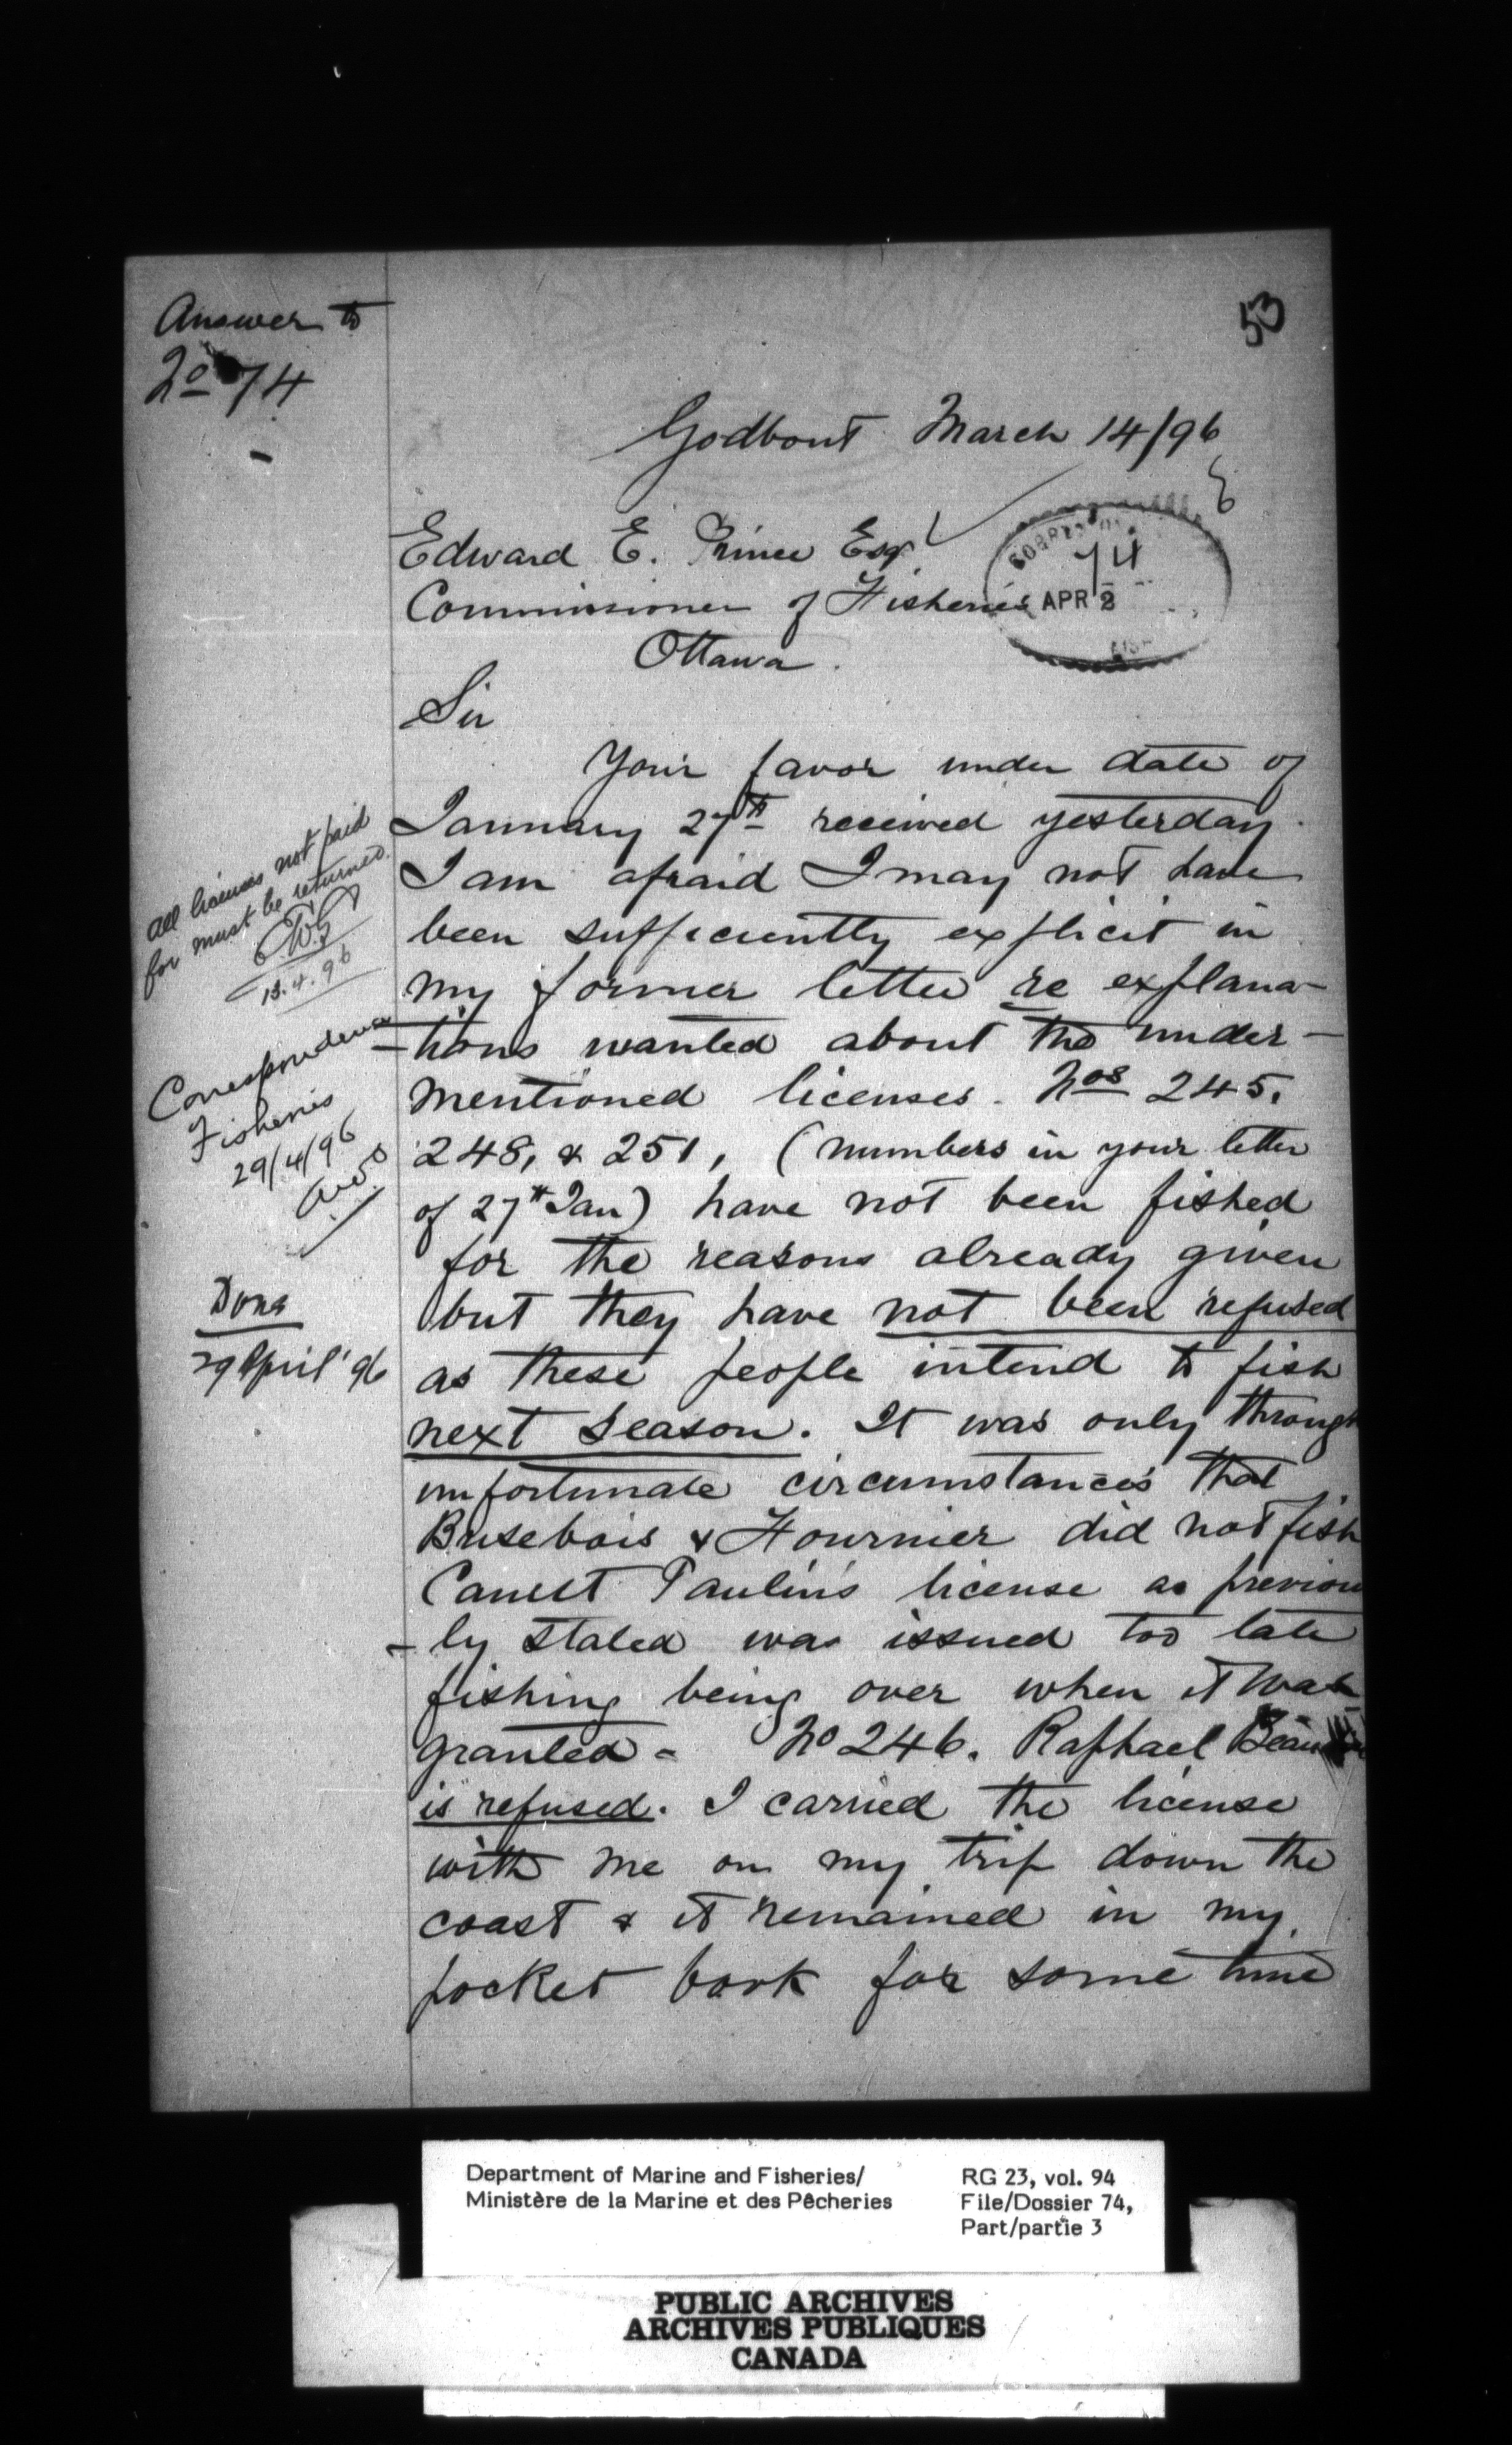 Answer to
No 74
53
Godbout March 14/96
Edward E. Prince Esqr
Commissioner of Fisheries
Ottawa.
74
APR 2
Sir
Your favor under date of
January 27th received yesterday.
I am afraid I may not have
been sufficiently explicit in
my former letter re explana-
-tions wanted about the under-
mentioned licenses. Nos 245,
248, & 251, (numbers in your letter
of 27th Jan) have not been fished
for the reasons already given
but they have not been refused
as these people intend to fish
next season. It was only through
unfortunate circumstances that
Brisebois & Fournier did not fish
Canut Paulin's license as previous
-ly stated was issued too late
fishing being over when it was
granted - No 246. Raphael
is refused. I carried the license
with me on my trip down the
coast & it remained in my
pocket book for some time
All licenses not paid
for must be returned.
13.4.96
Correspondence
Fisheries
29/4/96
Done
29 April '96
Department of Marine and Fisheries/
Ministère de la Marine et des Pêcheries
RG 23, vol. 94
File/Dossier 74,
Part/partie 3
PUBLIC ARCHIVES
ARCHIVES PUBLIQUES
CANADA